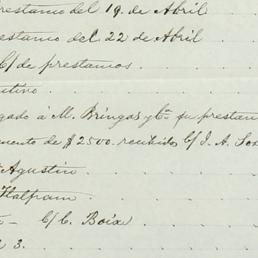 prestamo del 19 de Abril
prestamo del 22 de Abril
C/ de prestamos.
gado á M. Bringas y Cª su prestam
mento de $2500. recibidos C/ J. A. Sos
Agustin
Tlalpam.
C/ C. Boix
3.